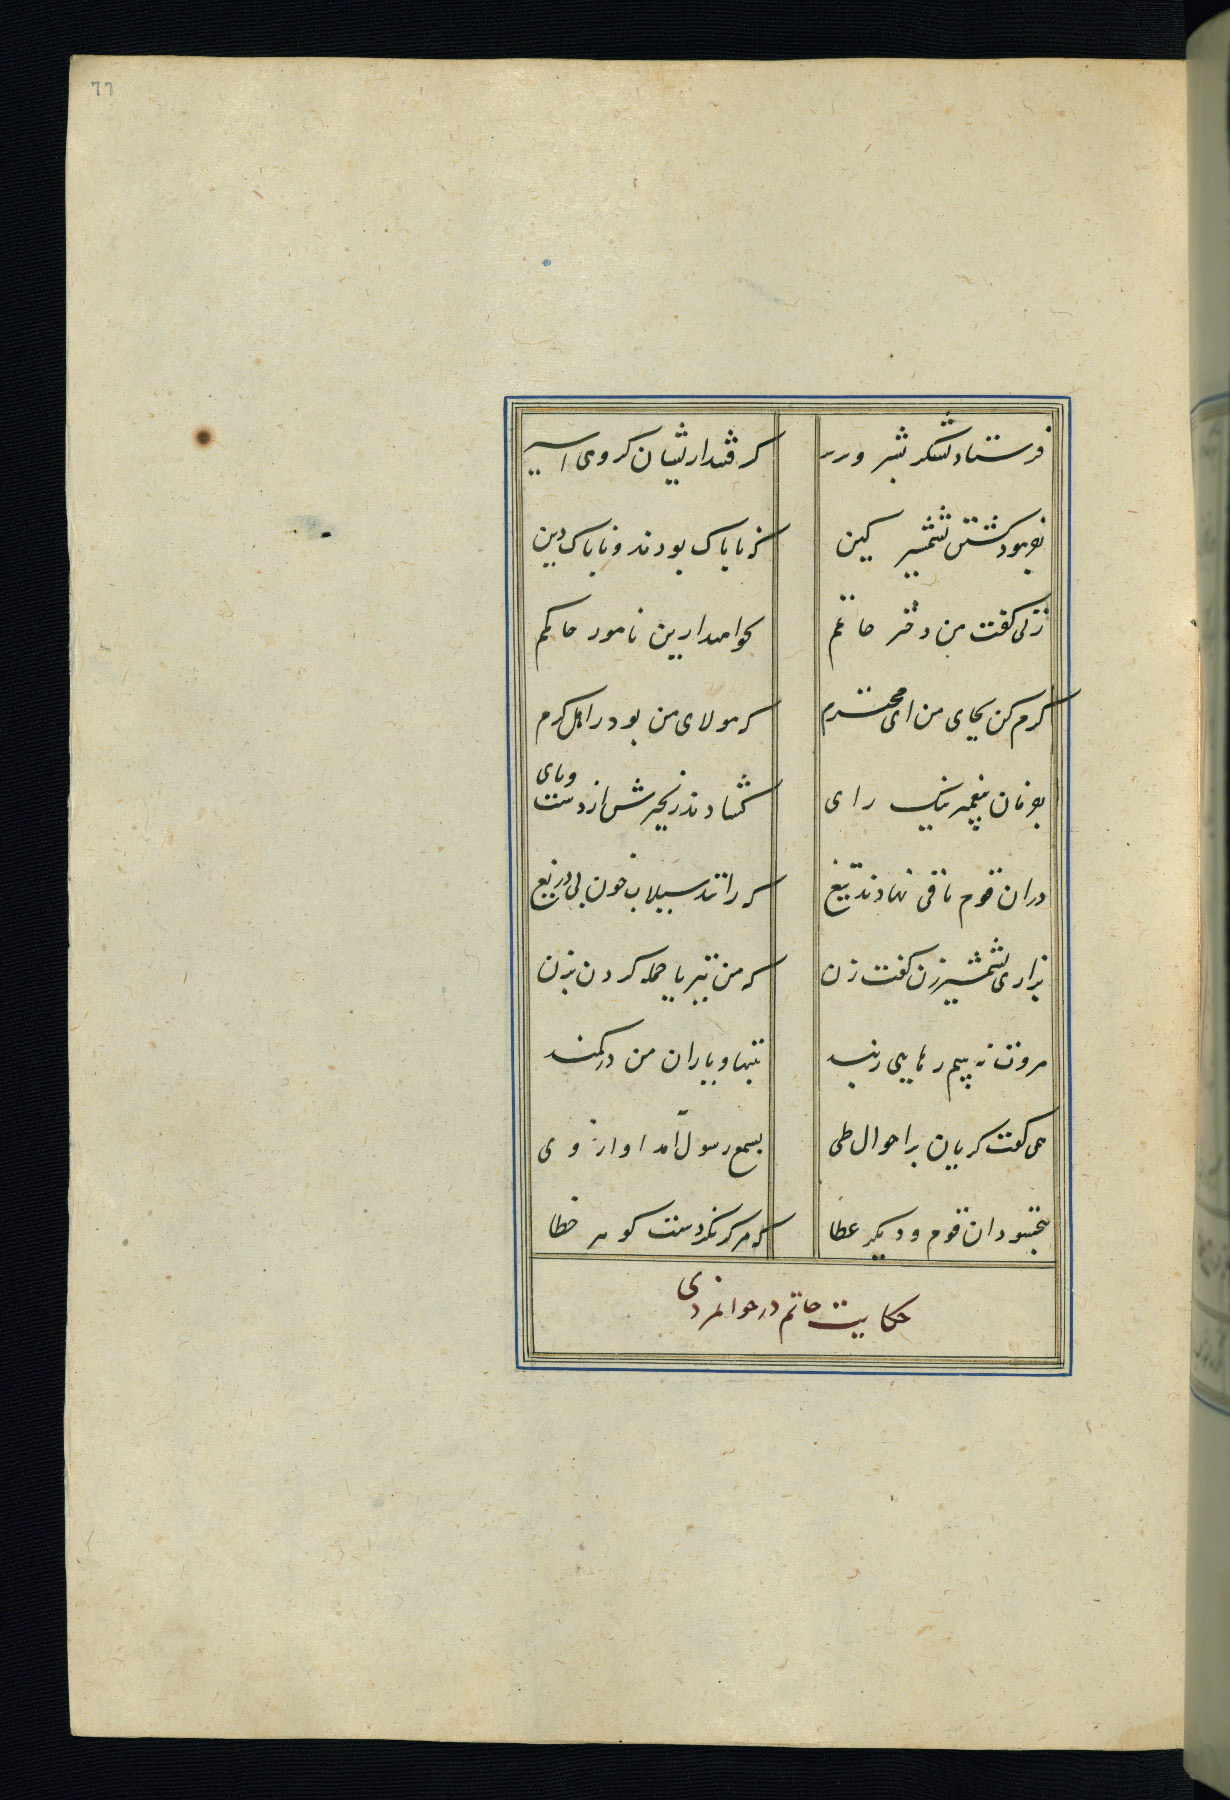 ٦٦
فرستاد لشکر بشیر و نذیر گرفتند ازیشان گروهی اسیر
بفرمود کشتن بشمشیر کین که ناپاک بودند و ناپاک دین
زنی گفت من دختر حاتمم بخواهید ازین نامور حاکمم
کرم کن بجای من ای محترم که مولای من بود در اهل کرم
بفرمان پیغمبر نیک رای گشادند زنجیرش از دست و پای
دران قوم باقی نهادند تیغ که رانند سیلاب خون بی دریغ
بزاری بشمشیرزن گفت زن که من نیز با جمله گردن بزن
مروت نه بینم رهایی ز بند بتنها و یاران من در کمند
همی گفت گریان بر احوال طی بسمع رسول آمد آواز وی
ببخشود آن قوم و دیگر عطا که هرگز نکرد ست گوهر خطا
حکایت حاتم در جوانمردی